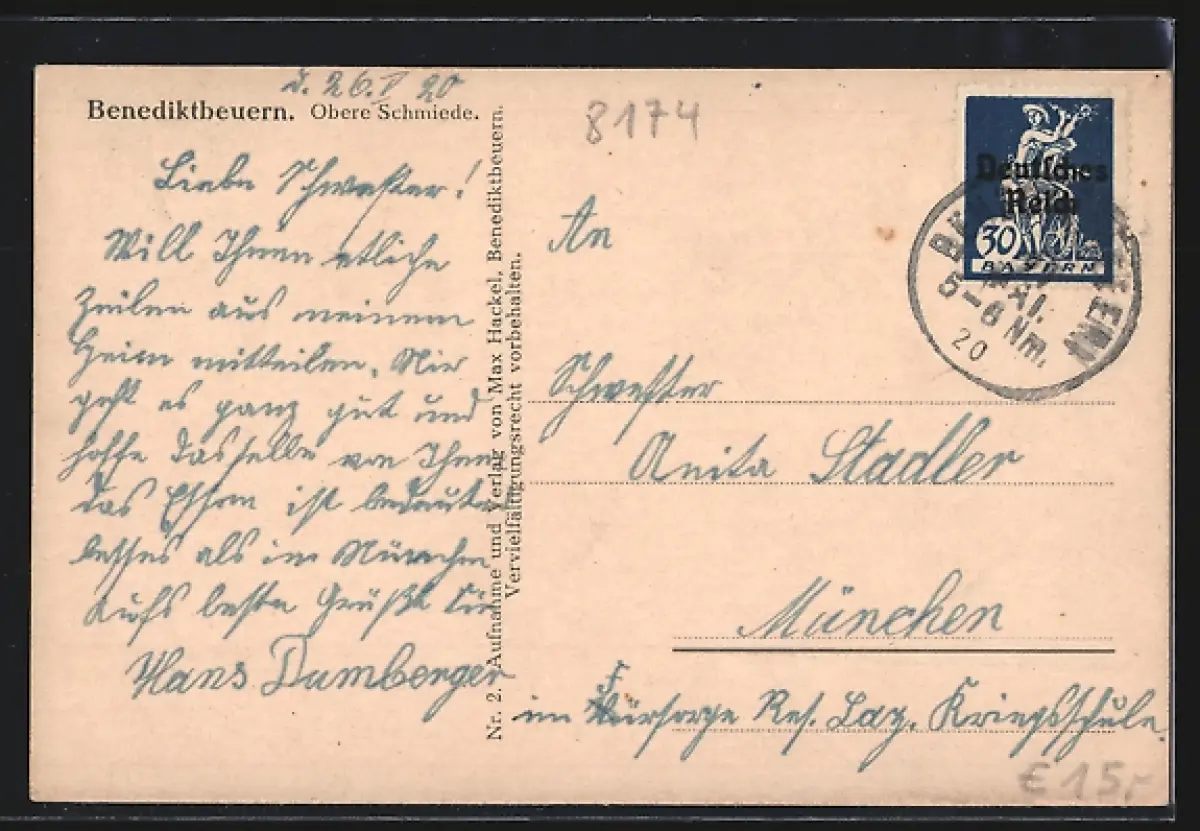 d. 26. V 20
Benediktbeuern. Obere Schmiede.
Liebe Schwester!
Will Ihnen etliche
Zeilen aus meinem
Heim mitteilen. Mir
geht es ganz gut und
hoffe dasselbe von Ihnen
das Essen ist bedeutend
besser als in München
Aufs beste Grüßt Sie
Hans Damberger
Nr. 2. Aufnahme und Verlag von Max Hackel, Benediktbeuern.
Vervielfältigungsrecht vorbehalten.
8174
Deutsches
Reich
30
BAYERN
XI.
5-6 Nm.
20
An
Schwester
Anita Stadler
München
im Fürsorge Res. Laz. Kriegsschule.
€ 15,-